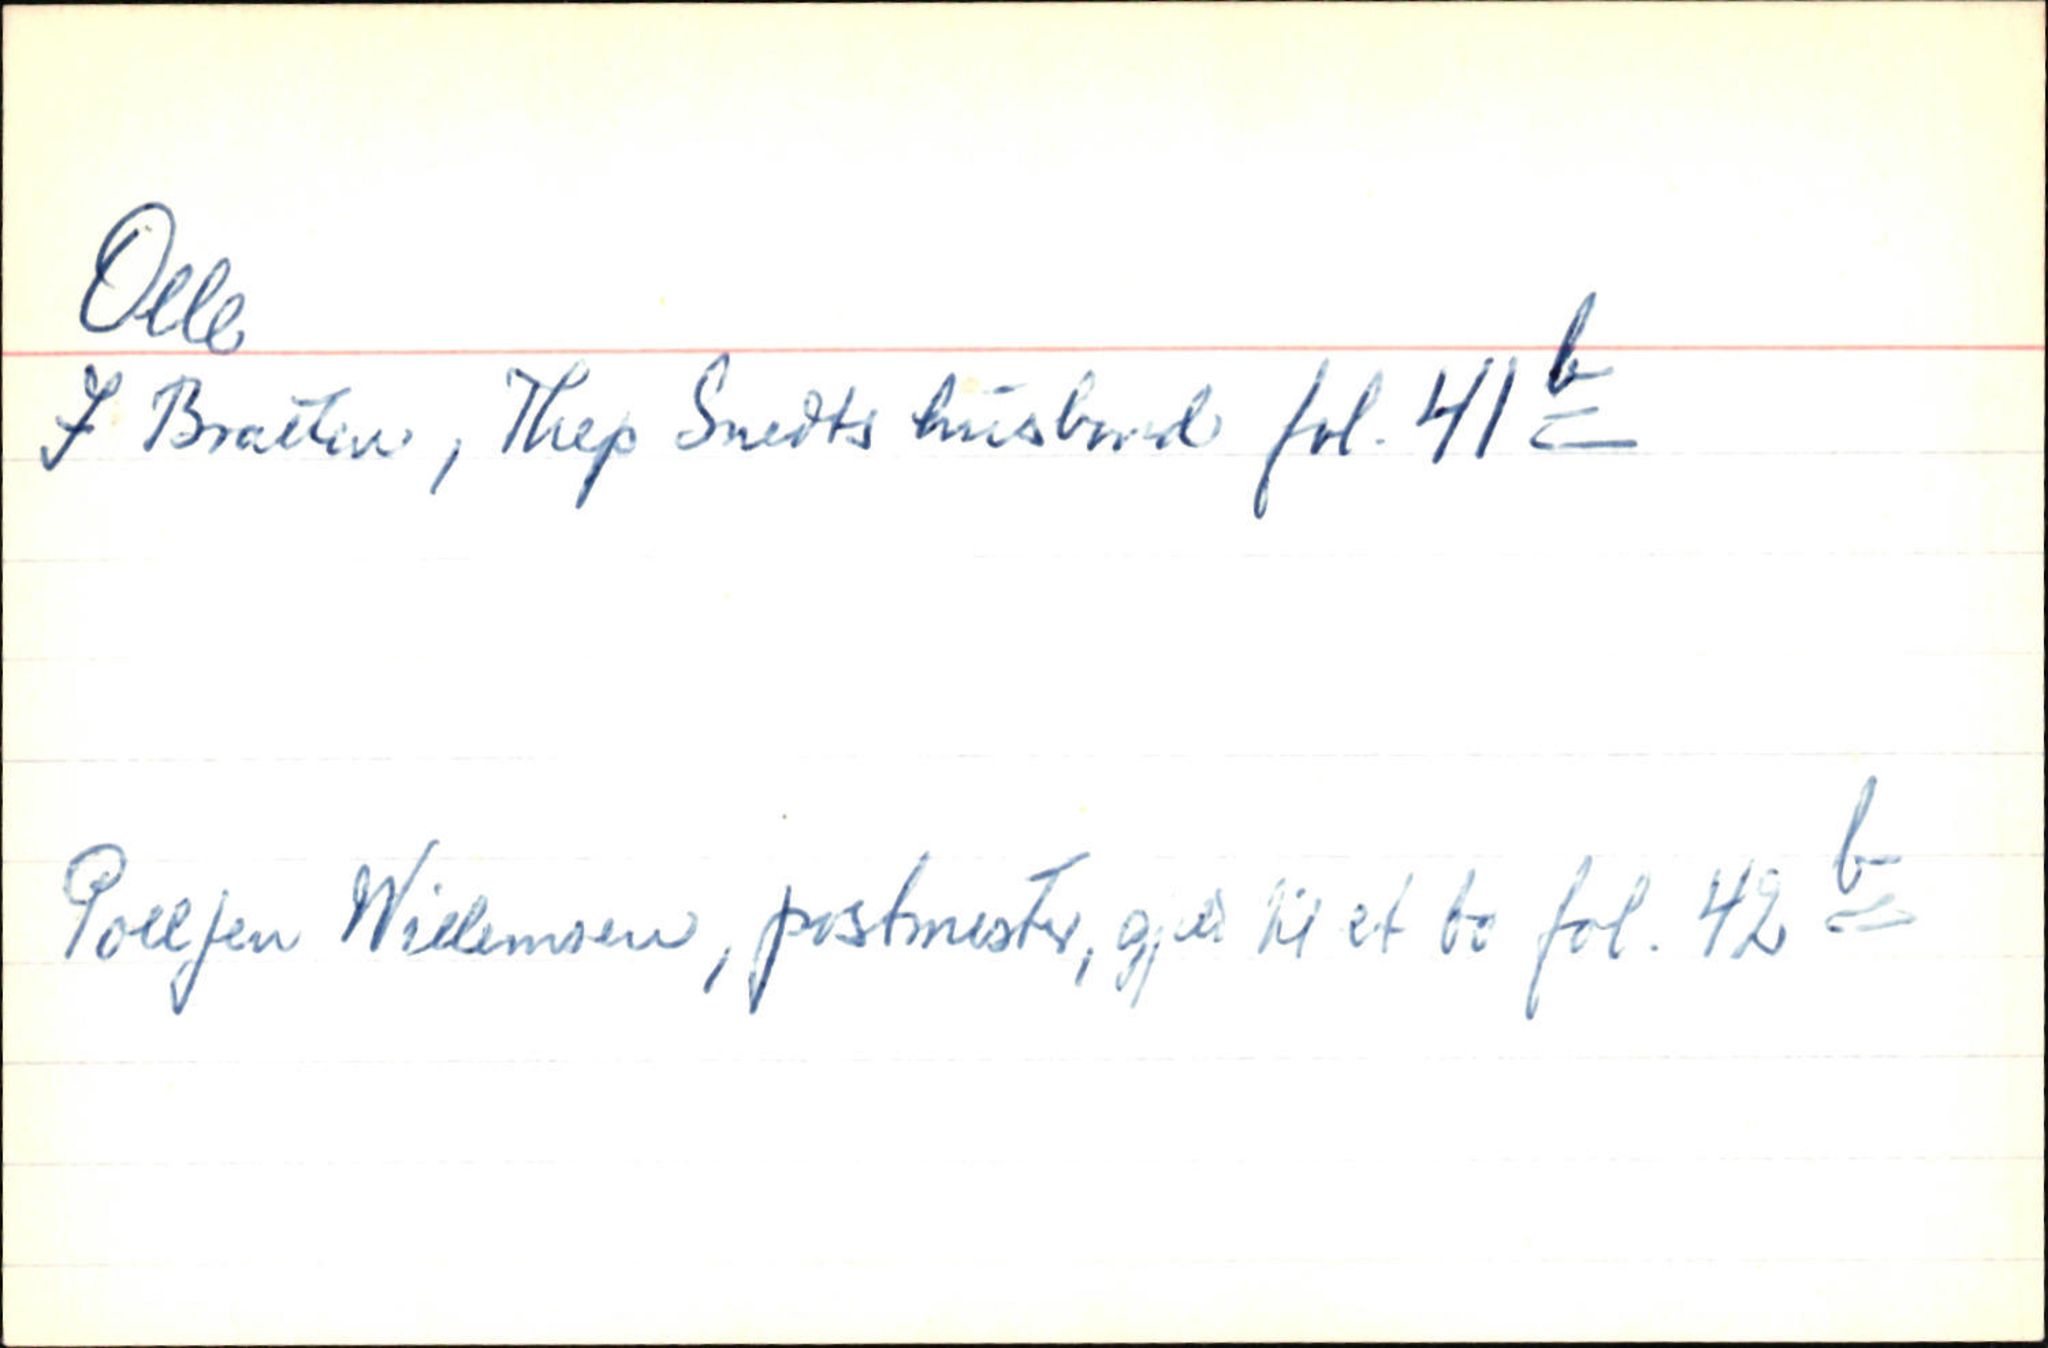 Olle
I Braaten, Thep Snedts husbond fol. 41 b
Poeljen Willemsen, postmester, gjeld til et bo fol. 42 b